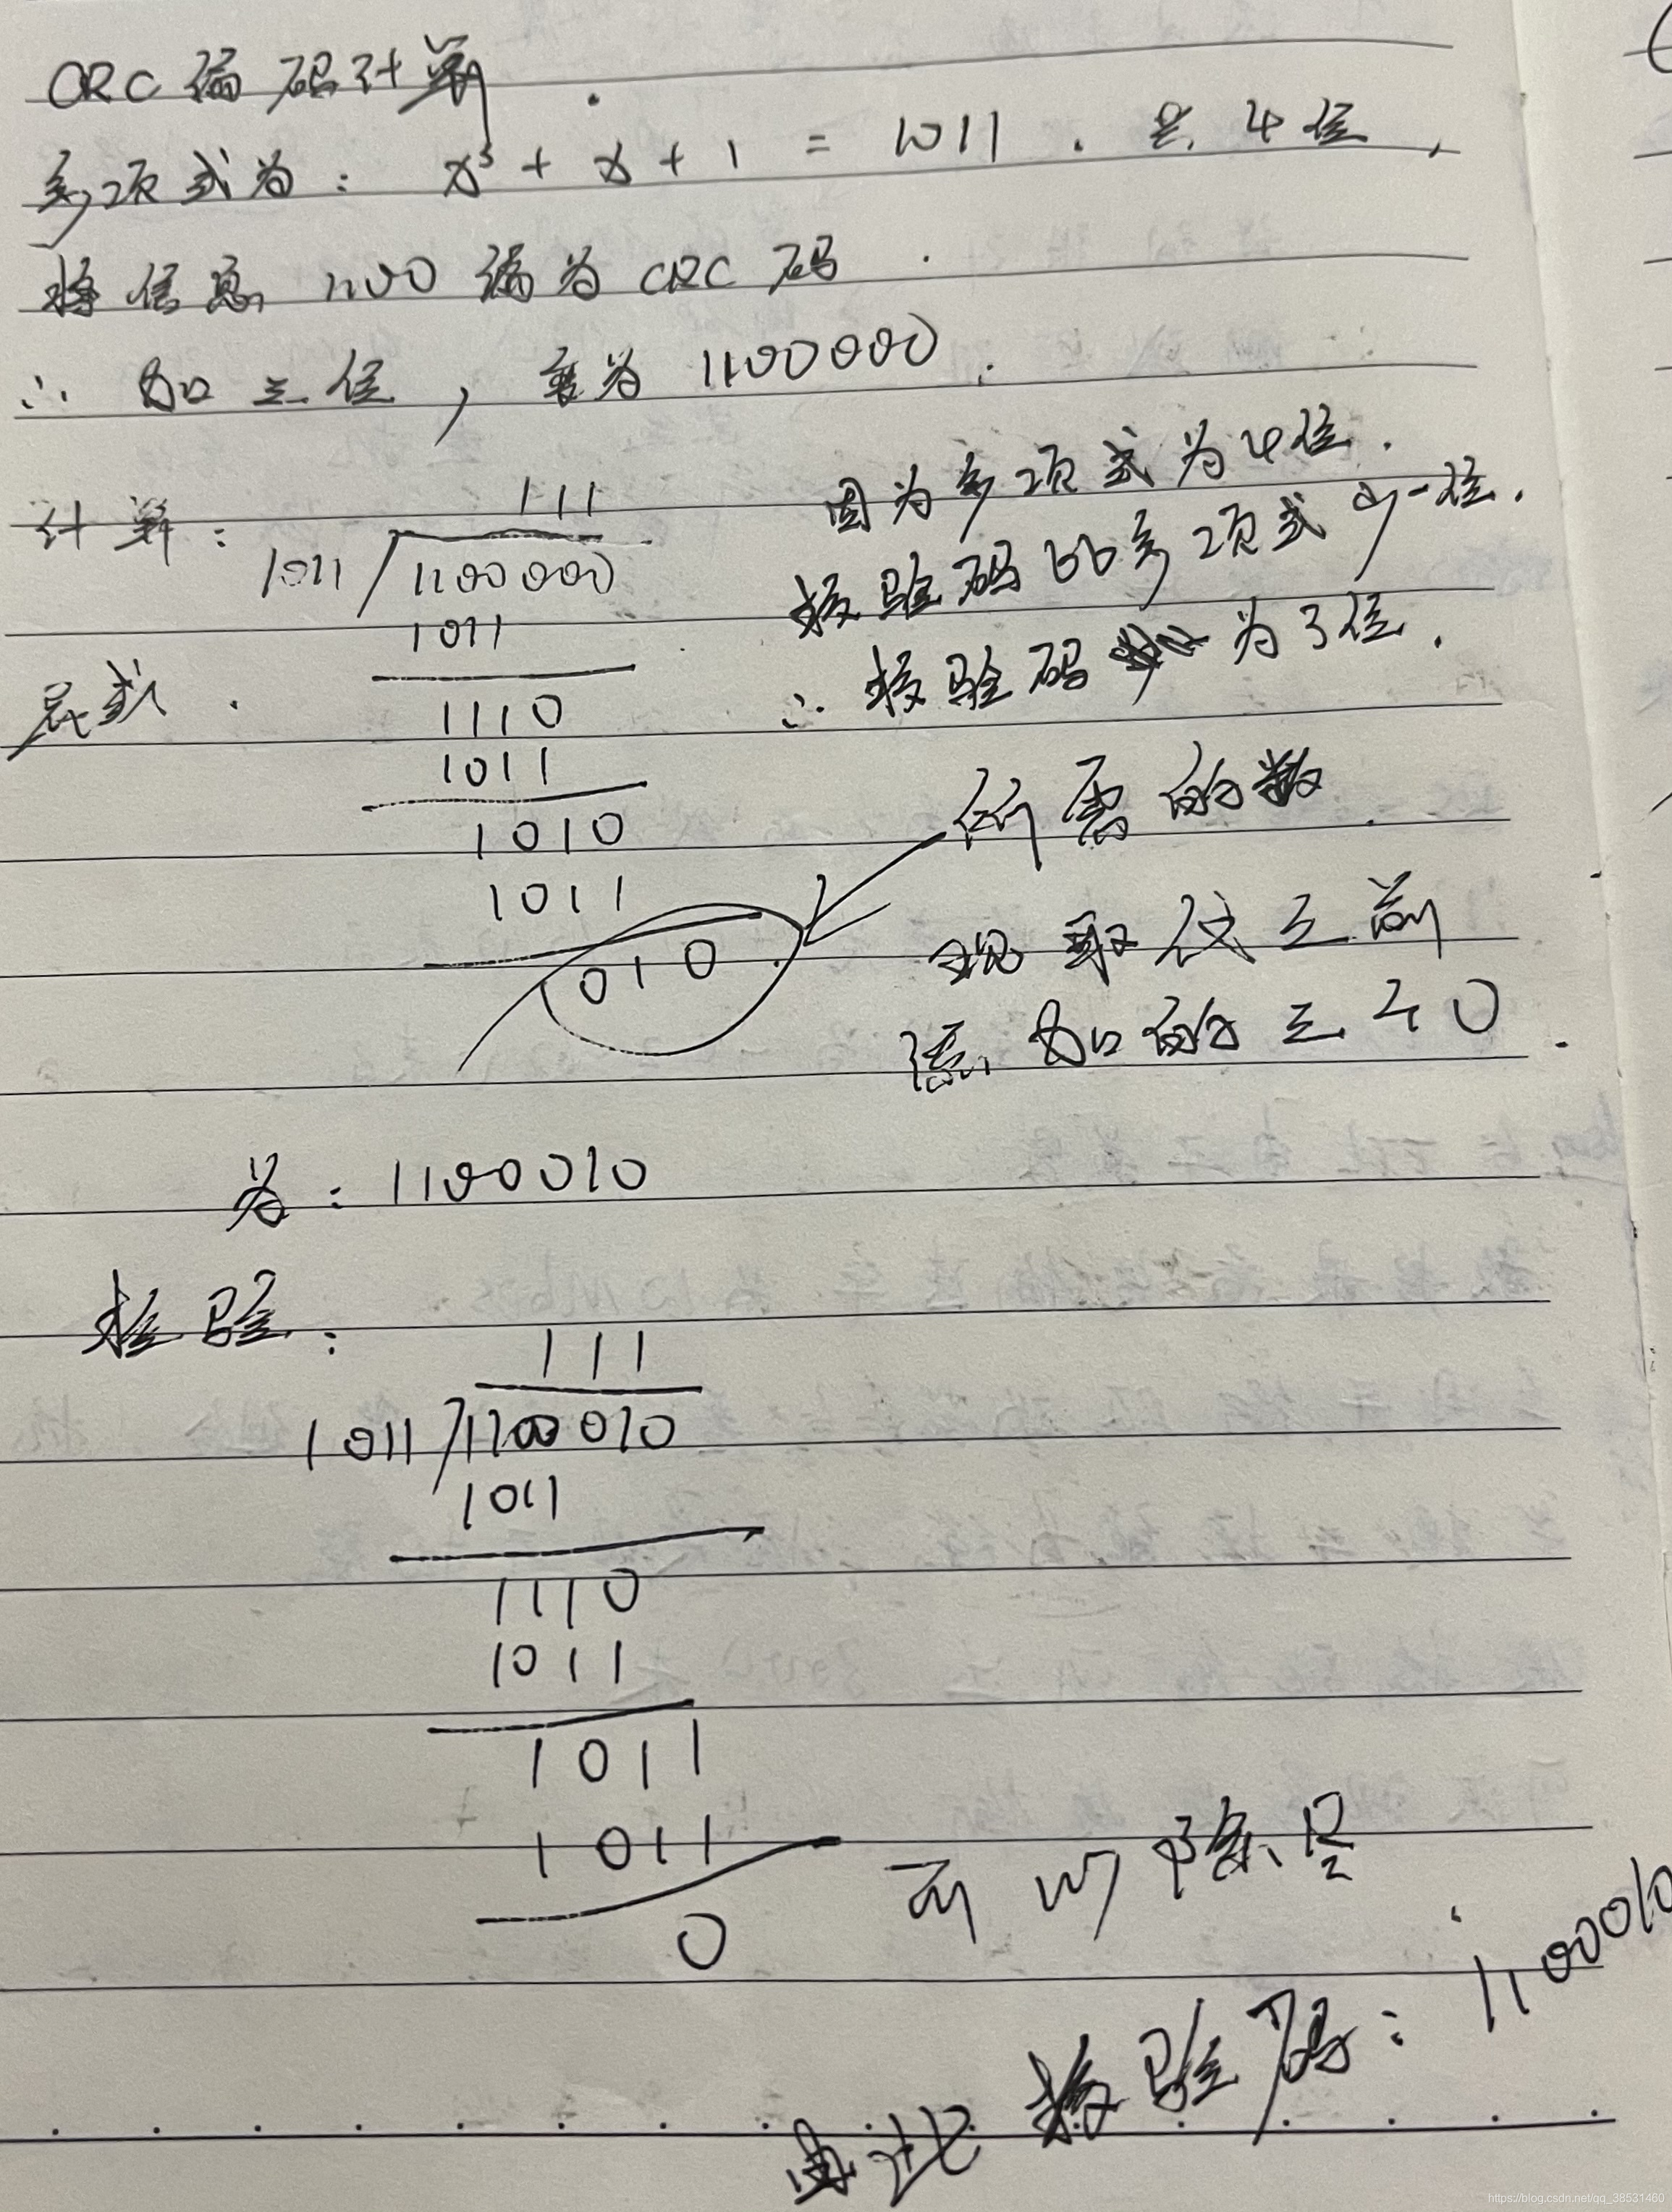 CRC编码计算.
多项式为: x³ + x + 1 = 1011 . 是 4位,
将信息 1100 编为 CRC 码.
∴ 加三位, 变为 1100000.
计算:
111
1011 1100000
1011
1110
1011
1010
1011
010
因为多项式为4位.
校验码比多项式少一位.
∴ 校验码 为3位.
所需的数
现取代之前
添加的三个0.
为: 1100010
检验:
111
1011 1100010
1011
1110
1011
1011
1011
0
可以除尽
由此校验码: 1100010
https://blog.csdn.net/qq_38531460